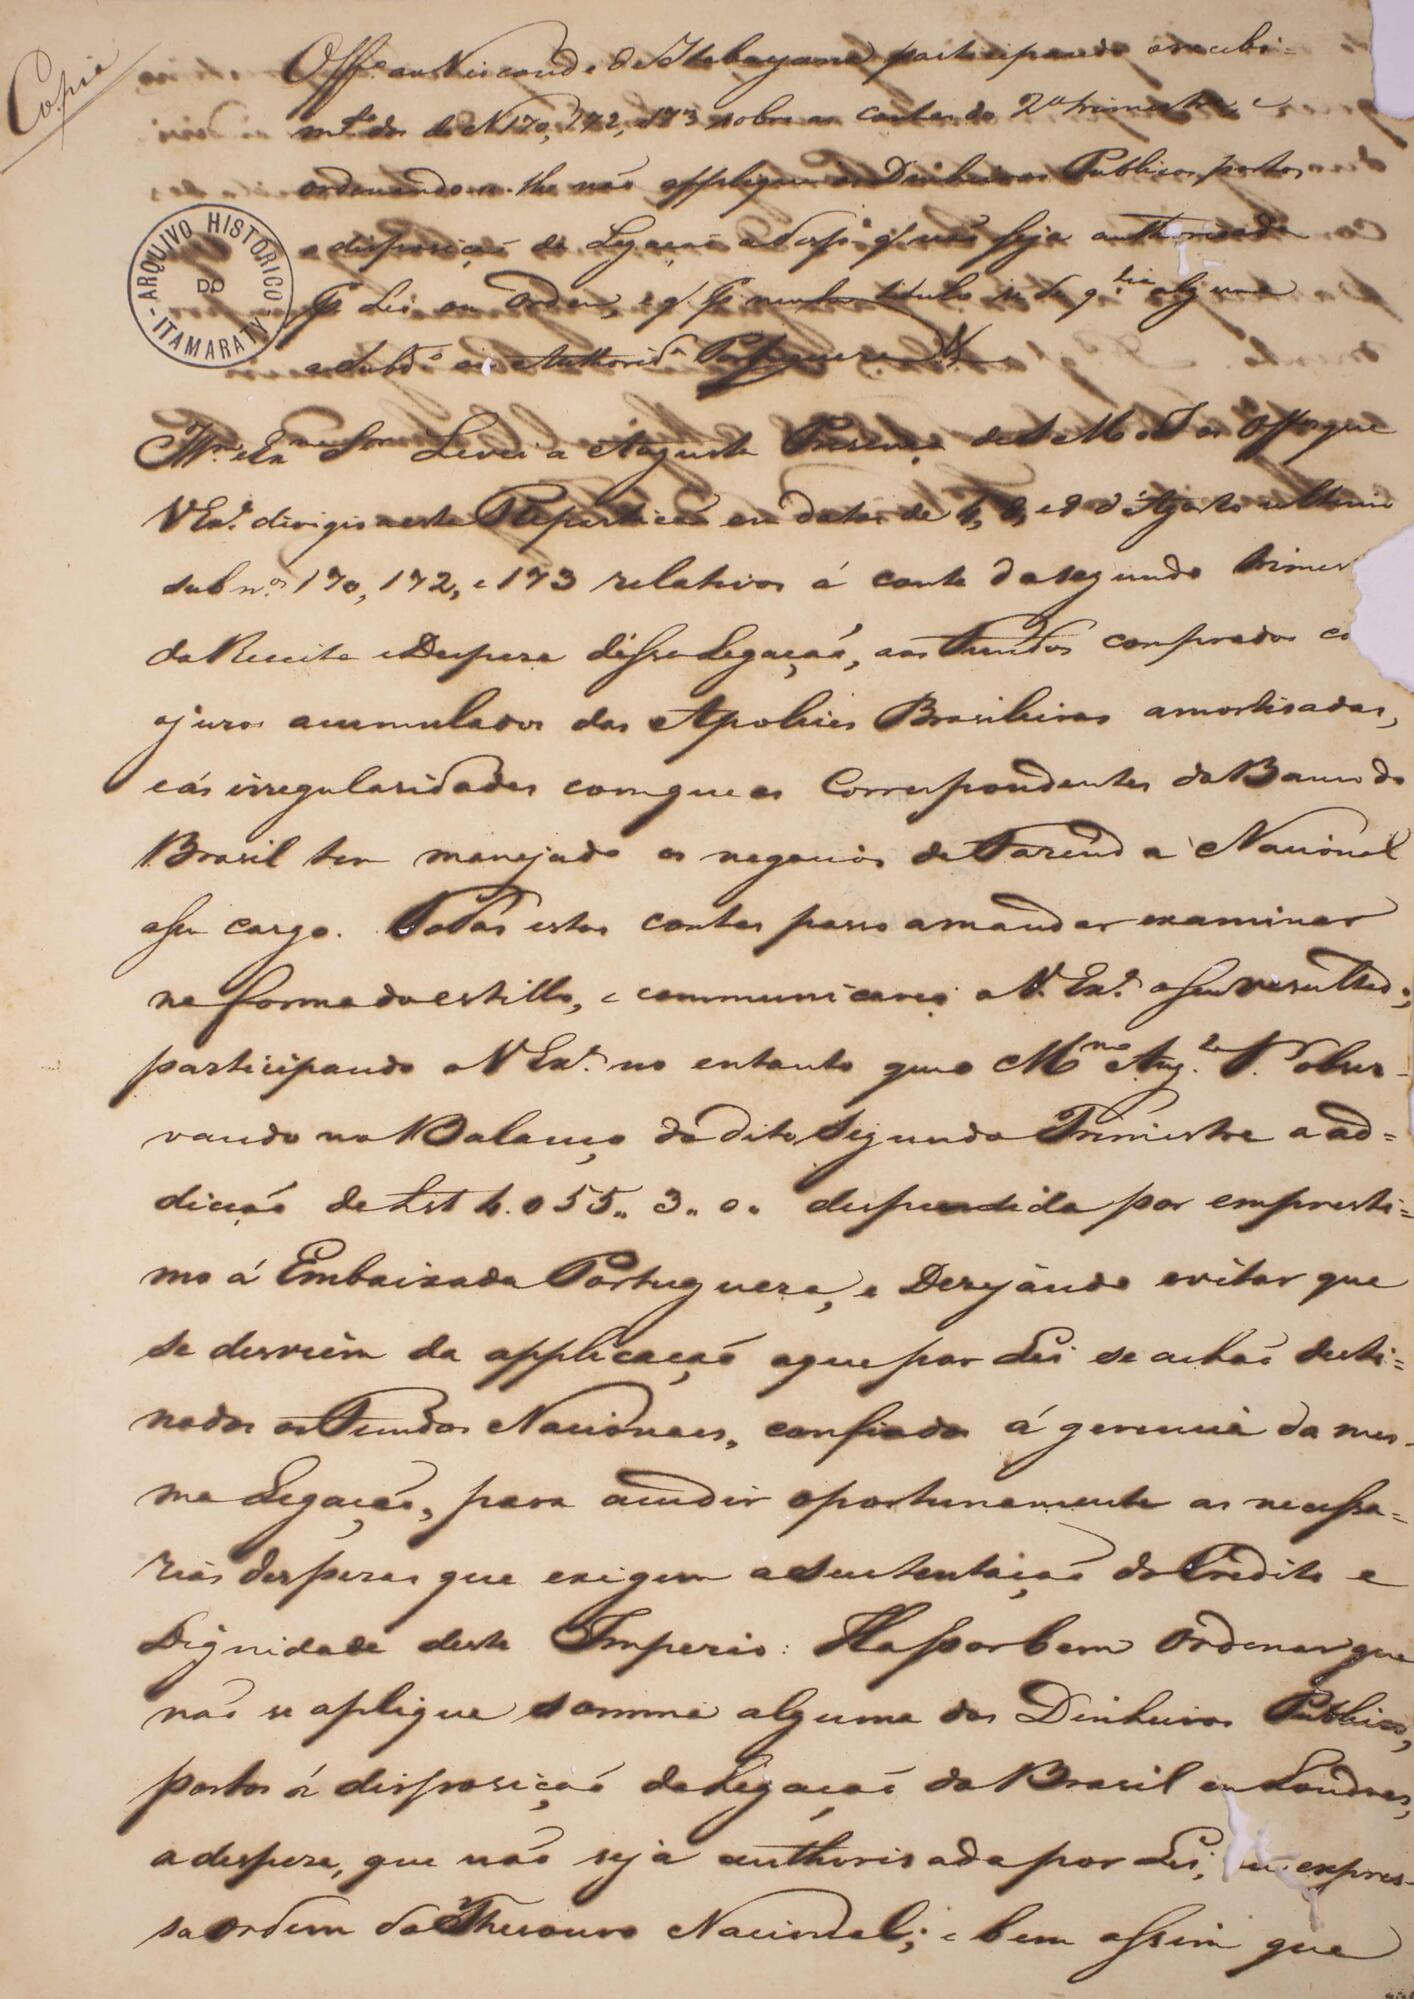 Copia
Off.º ao Visconde de Itabayana participando o recebi=
m.to dos de N 170, 172, 173 sobre as contas do 2º trimestre, e
ordenando-se-lhe não applique os Dinheiros Publicos postos
a disposição da Legação a desp.ª q' não seja authorisada
p.r Lei ou Ordem, e q' p.r nenhum titulo se dê q.tia alguma
a Subd.º ou Authorid.e Portugueza
ARQUIVO HISTORICO
DO
- ITAMARATY -
Ill.mo e Ex.mo Snr. Levei a Augusta Presença de S M o I os Off.os que
V Ex.ª dirigio a esta Repartição em datas de 4, 8, e 9 d'Agosto ultimo
sub n.os 170, 172, e 173 relativos á conta do segundo trimes
da Receita e Despeza dessa Legação, aos Fundos comprados co
os juros acumulados das Apolices Brasileiras amortisadas,
e ás irregularidades com que os Correspondentes do Banco do
Brasil tem manejado os negocios da Fazenda Nacional
a seu cargo. Todas estas contas passo a mandar examinar
na forma do estillo, e communicarei a V. Ex.ª o seu resultado;
participando a V Ex.ª no entanto que o M.mo Aug.to S.r obser-
vando no Balanço do dito Segundo Trimestre a ad=
dicção de Lst 4.055,, 3,, 0,, despendida por empresti=
mo á Embaixada Portugueza, e Desejando evitar que
se desviem da applicação a que por Lei se achão desti=
nados os Fundos Nacionaes, confiados á gerencia da mes-
ma Legação, para acudir oportunamente as necessa=
rias despezas que exigem a sustentação do Credito e
Dignidade deste Imperio: Ha por bem Ordenar que
não se aplique somma alguma dos Dinheiros Publicos,
postos á disposição da Legação do Brasil em Londres,
a despeza, que não seja authorisada por Lei, ou expres-
sa ordem do Thesouro Nacional; e bem assim que